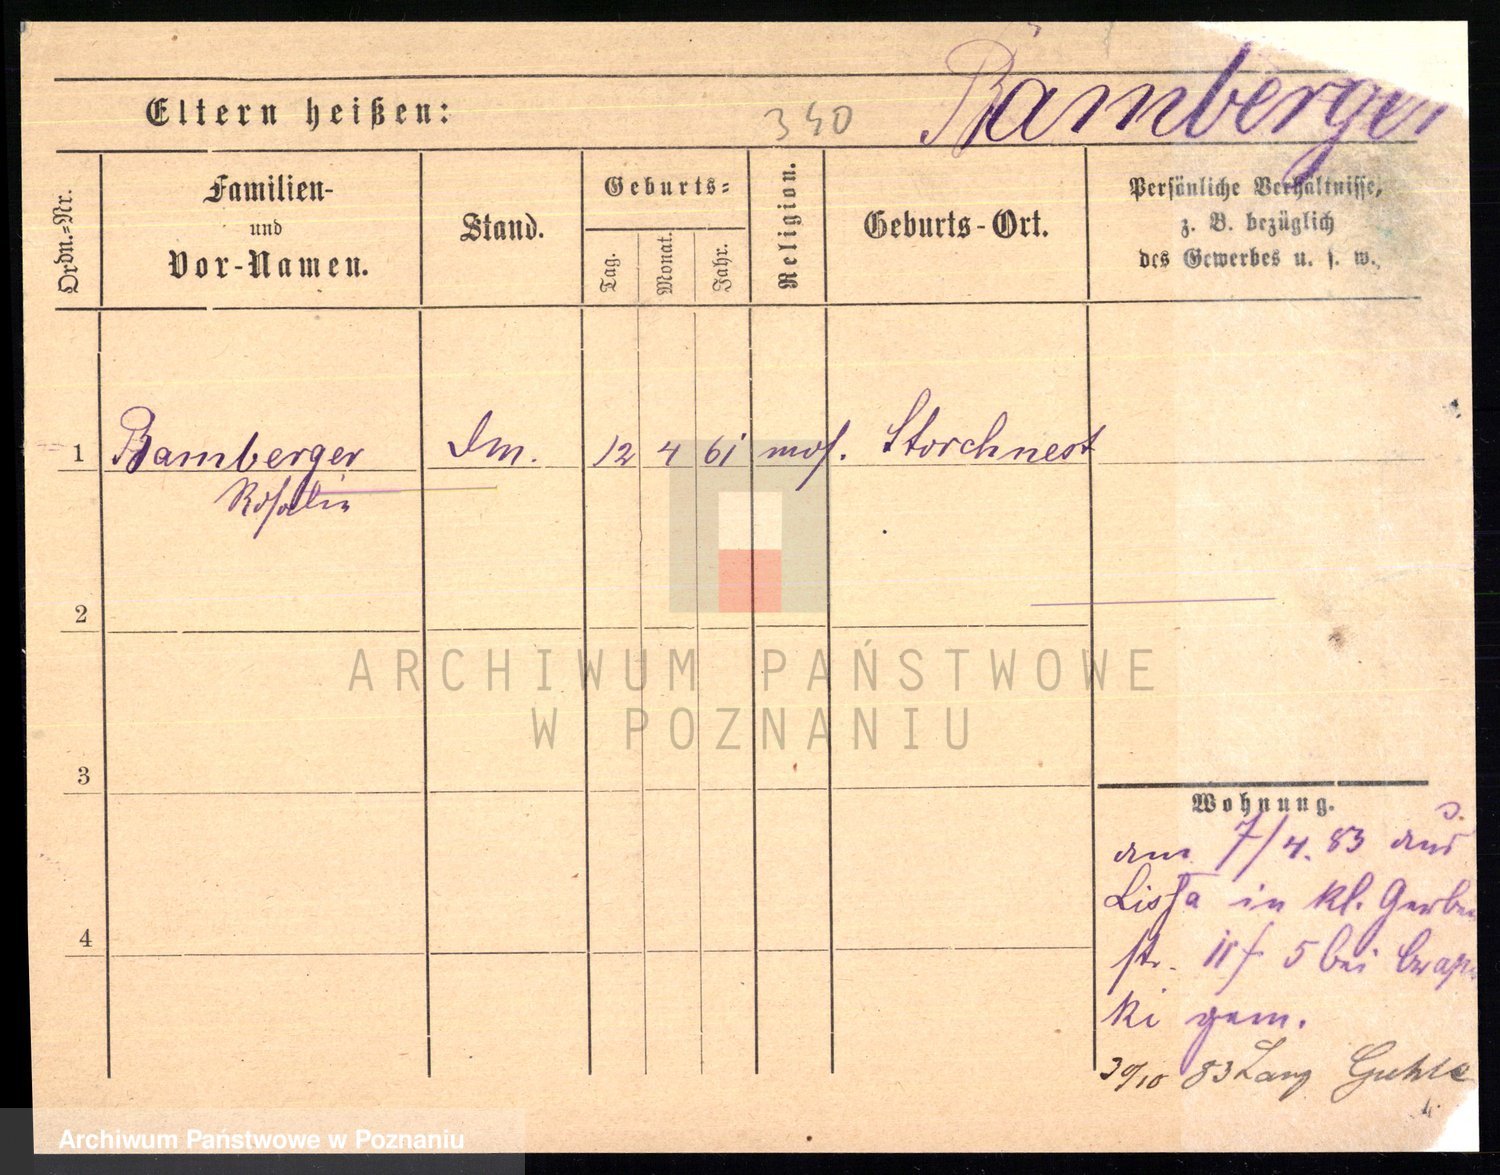 Bamberger
Eltern heißen:
340
Ordn.=Nr.
Familien-
und
Vor-Namen.
Stand.
Geburts=
Tag.
Monat.
Jahr.
Religion.
Geburts-Ort.
Persönliche Verhältnisse,
z. B. bezüglich
des Gewerbes u. s. w.
1 Bamberger Dm. 12 4 61 mos. Storchnest
Rosalie
2
3
4
ARCHIWUM PAŃSTWOWE
W POZNANIU
Wohnung.
am 7/4. 83 aus
Lissa in kl. Gerber
str. 5 bei
ki gem.
30/10 83
Archiwum Państwowe w Poznaniu